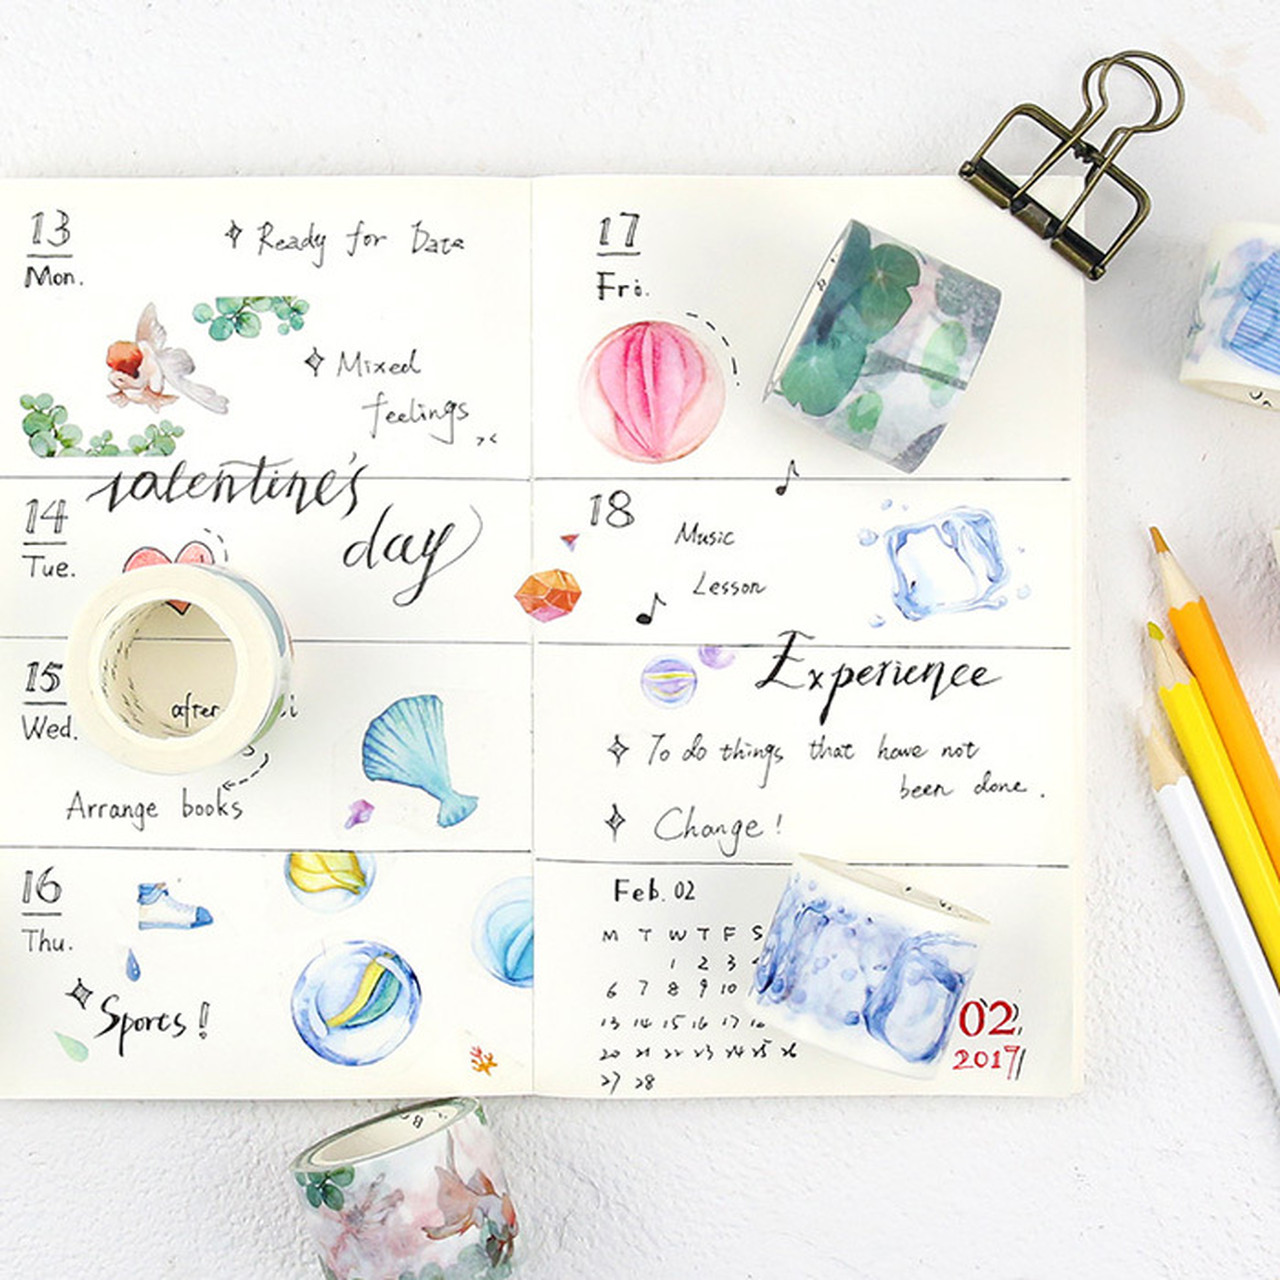 13
Mon.
Ready for Date
Mixed
feelings
valentine's
day
14
Tue.
15
Wed.
after
Arrange books
16
Thu.
Sports!
17
Fri.
18
Music
Lesson
Experience
To do things that have not
been done.
Change!
Feb. 02
M T W T F S
1 2 3
6 7 8 9 10
13 14 15 16 17
20 21 22 23 24 25 26
27 28
02
2017